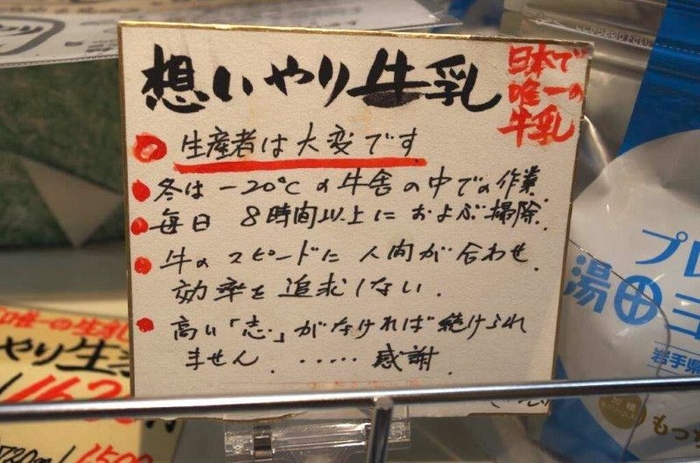 想いやり牛乳
日本で
唯一の
牛乳
生産者は大変です
冬は-20℃の牛舎の中での作業.
毎日 8時間以上におよぶ掃除.
牛のスピードに人間が合わせ.
効率を追求しない.
高い「志」がなければ続けられ
ません. ・・・・・感謝.
唯一の生
やり生
162
720ml
1500
プロ
湯田ヨ
岩手県
もっち